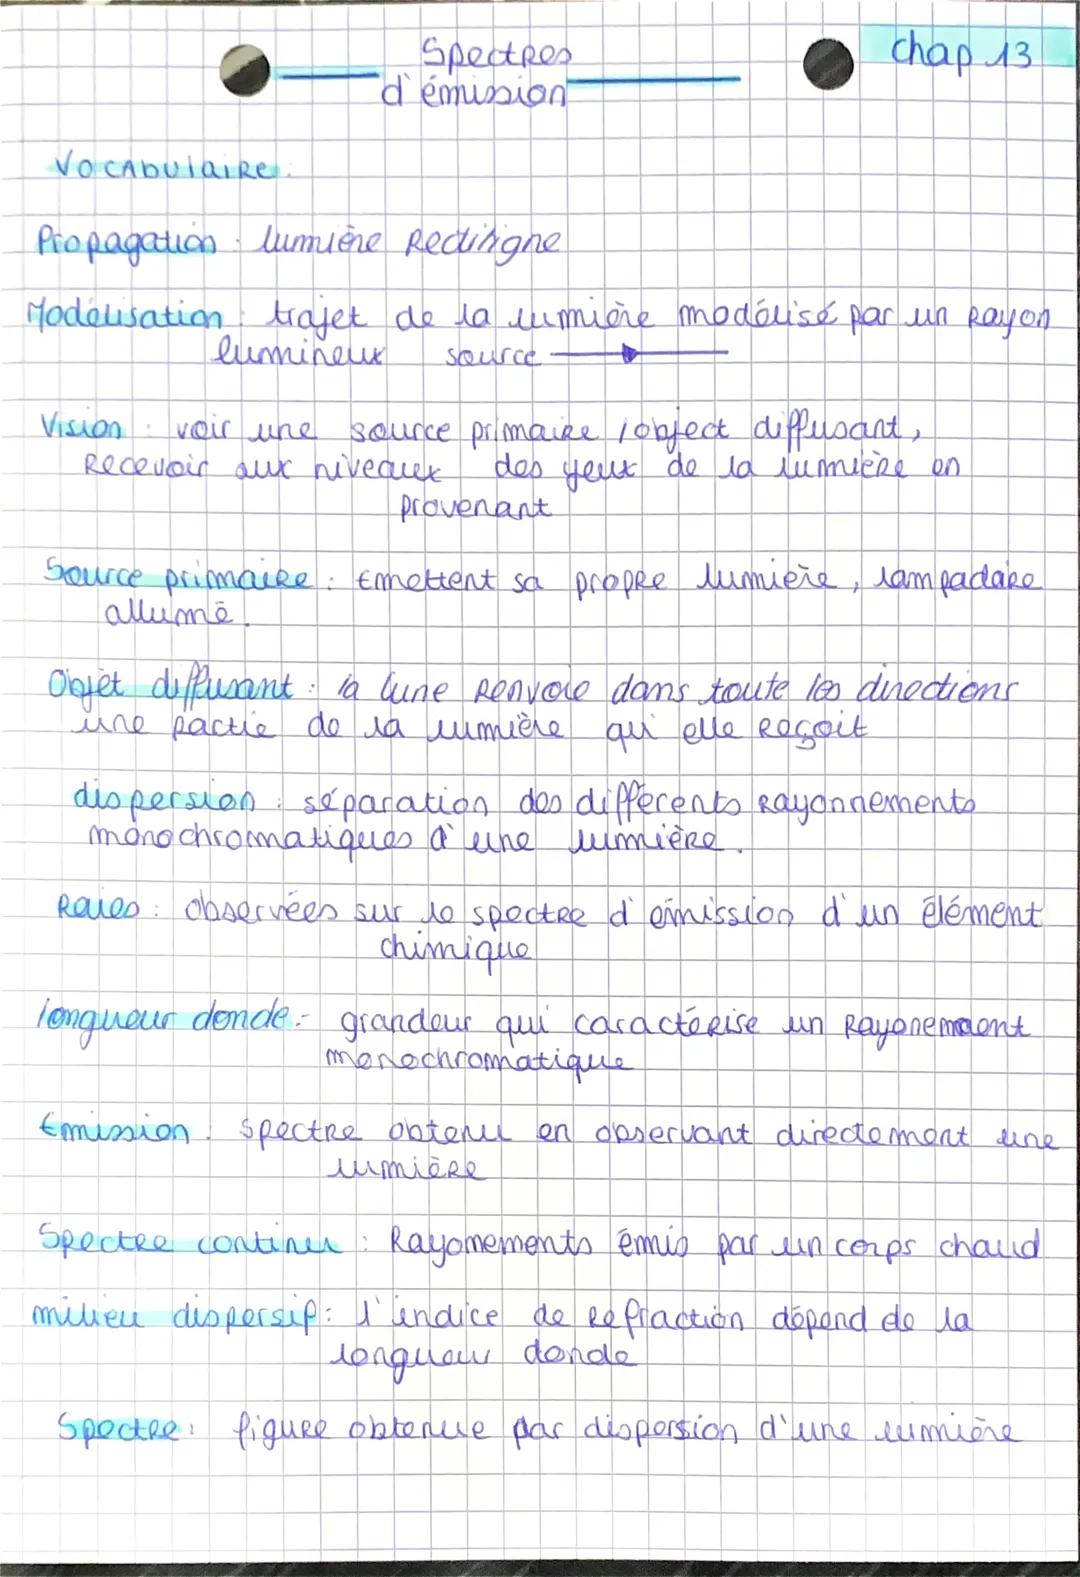 Spectres
d'émission
chap 13
Vocabulaire:
Propagation : lumière Rectiligne
Modélisation : trajet de la lumière modélisé par un Rayon
lumineux source
Vision : voir une source primaire / object diffusant,
Recevoir aux niveaux des yeux de la lumière en
provenant
Source primaire : Emettent sa propre lumière, lampadaire
allumé.
Objet diffusant : la lune Renvoie dans toute les directions
une partie de la lumière qui elle Reçoit
dispersion : séparation des différents Rayonnements
monochromatiques d'une lumière.
Raies : observées sur le spectre d'émission d'un élément
chimique
longueur donde :- grandeur qui caractérise un Rayonemaent
monochromatique
Emission : spectre obtenu en observant directement une
lumière
Spectre continu : Rayonnements émis par un corps chaud
milieu dispersif : l'indice de Refraction dépend de la
longueur donde
Spectre : figure obtenue par dispersion d'une lumière